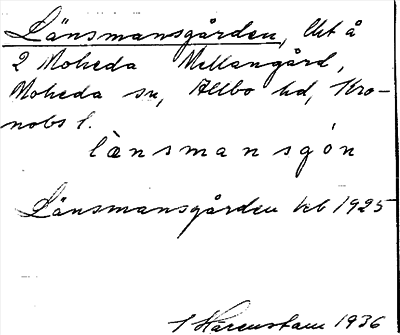 Länsmansgården, lht å
2 Moheda Mellangård,
Moheda sn, Allbo hd, Kro-
nobs l.
lànsmansgón
Länsmansgården kb 1925
1936